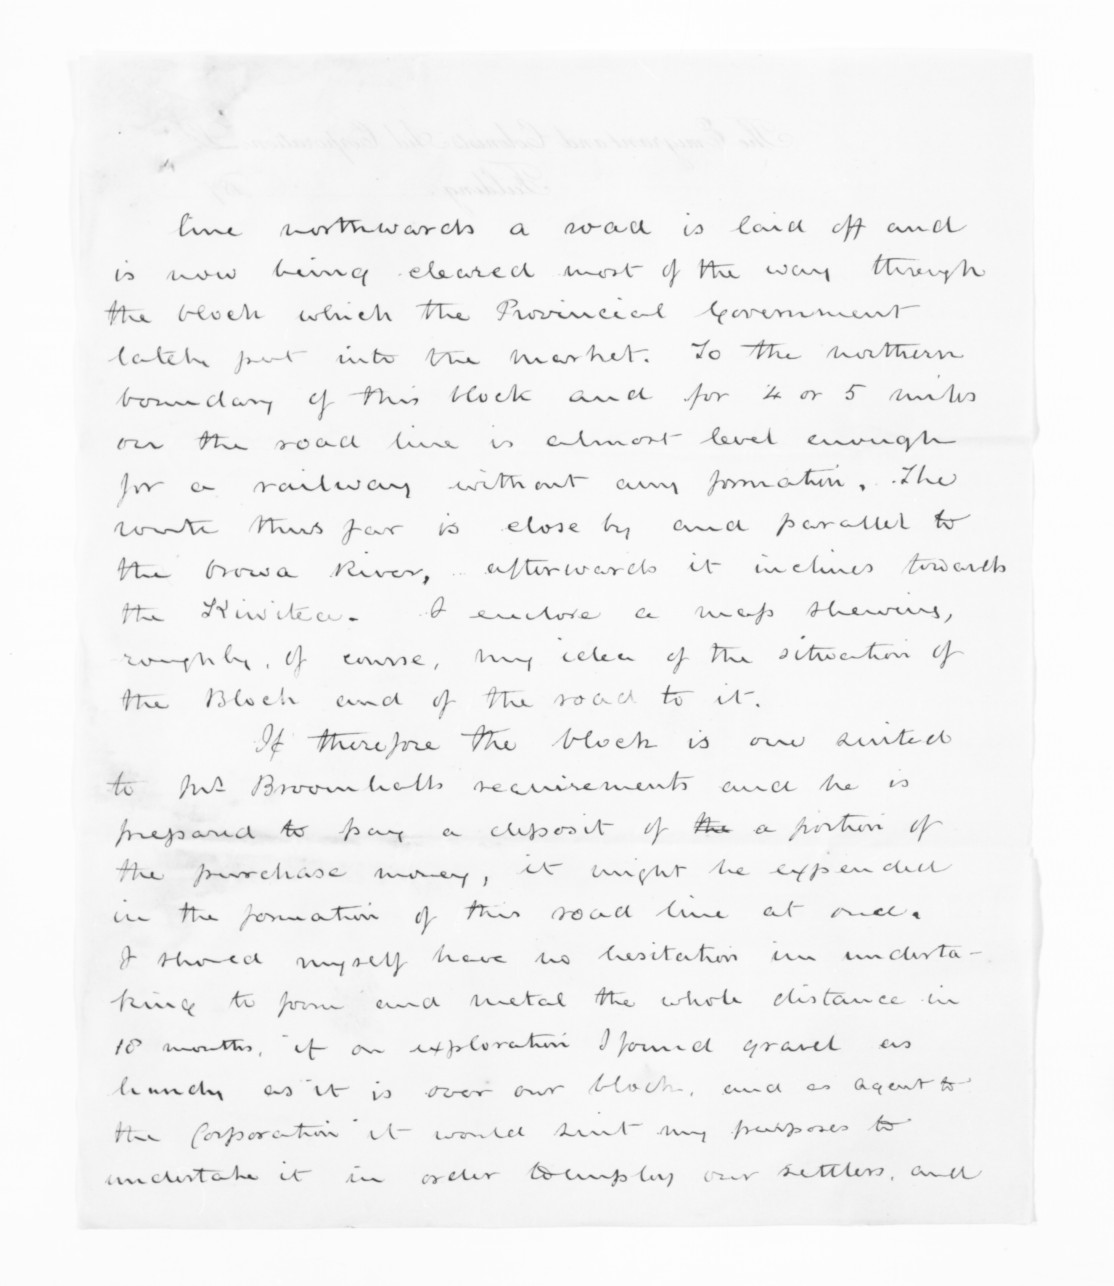 line northwards a road is laid off and
is now being cleared most of the way through
the block which the Provincial Government
lately put into the market. To the northern
boundary of this block and for 4 or 5 miles
on the road line is almost level enough
for a railway without any formation. The
route thus far is close by and parallel to
the Orowa River, afterwards it inclines towards
the Kiwitea. I enclose a map shewing,
roughly, of course, my idea of the situation of
the Block and of the road to it.
If therefore the block is one suited
to Mr. Broomhalls requirements and he is
prepared to pay a deposit of the a portion of
the purchase money, it might be expended
in the formation of this road line at once.
I should myself have no hesitation in underta-
king to form and metal the whole distance in
18 months, if on exploration I found gravel as
handy as it is over our block, and as agent to
the Corporation it would suit my purposes to
undertake it in order to employ our settlers, and